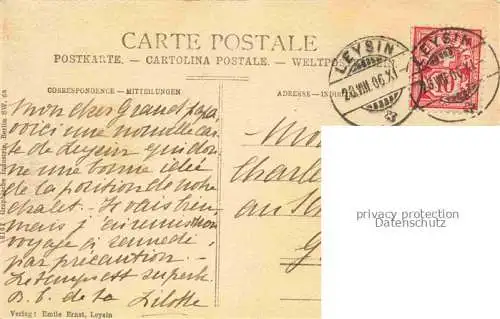 CARTE POSTALE
POSTKARTE. - CARTOLINA POSTALE. - WELTPOS
CORRESPONDENCE - MITTEILUNGEN
ADRESSE - INDIR
LEYSIN
28.VIII.06.XI
LEYSIN
Mon cher Grand papa
voici une nouvelle car
te de Leysin qui don
ne une bonne idée
de la position de notre
chalet. Je vais bien
mais j'ai
voyage à
par précaution. -
Le temps est superbe
B. E. de ta Lilotte
Mon
Charle
au
G
privacy protection
Datenschutz
Graphische Industrie, Berlin SW. 68
Verlag: Emile Ernst, Leysin